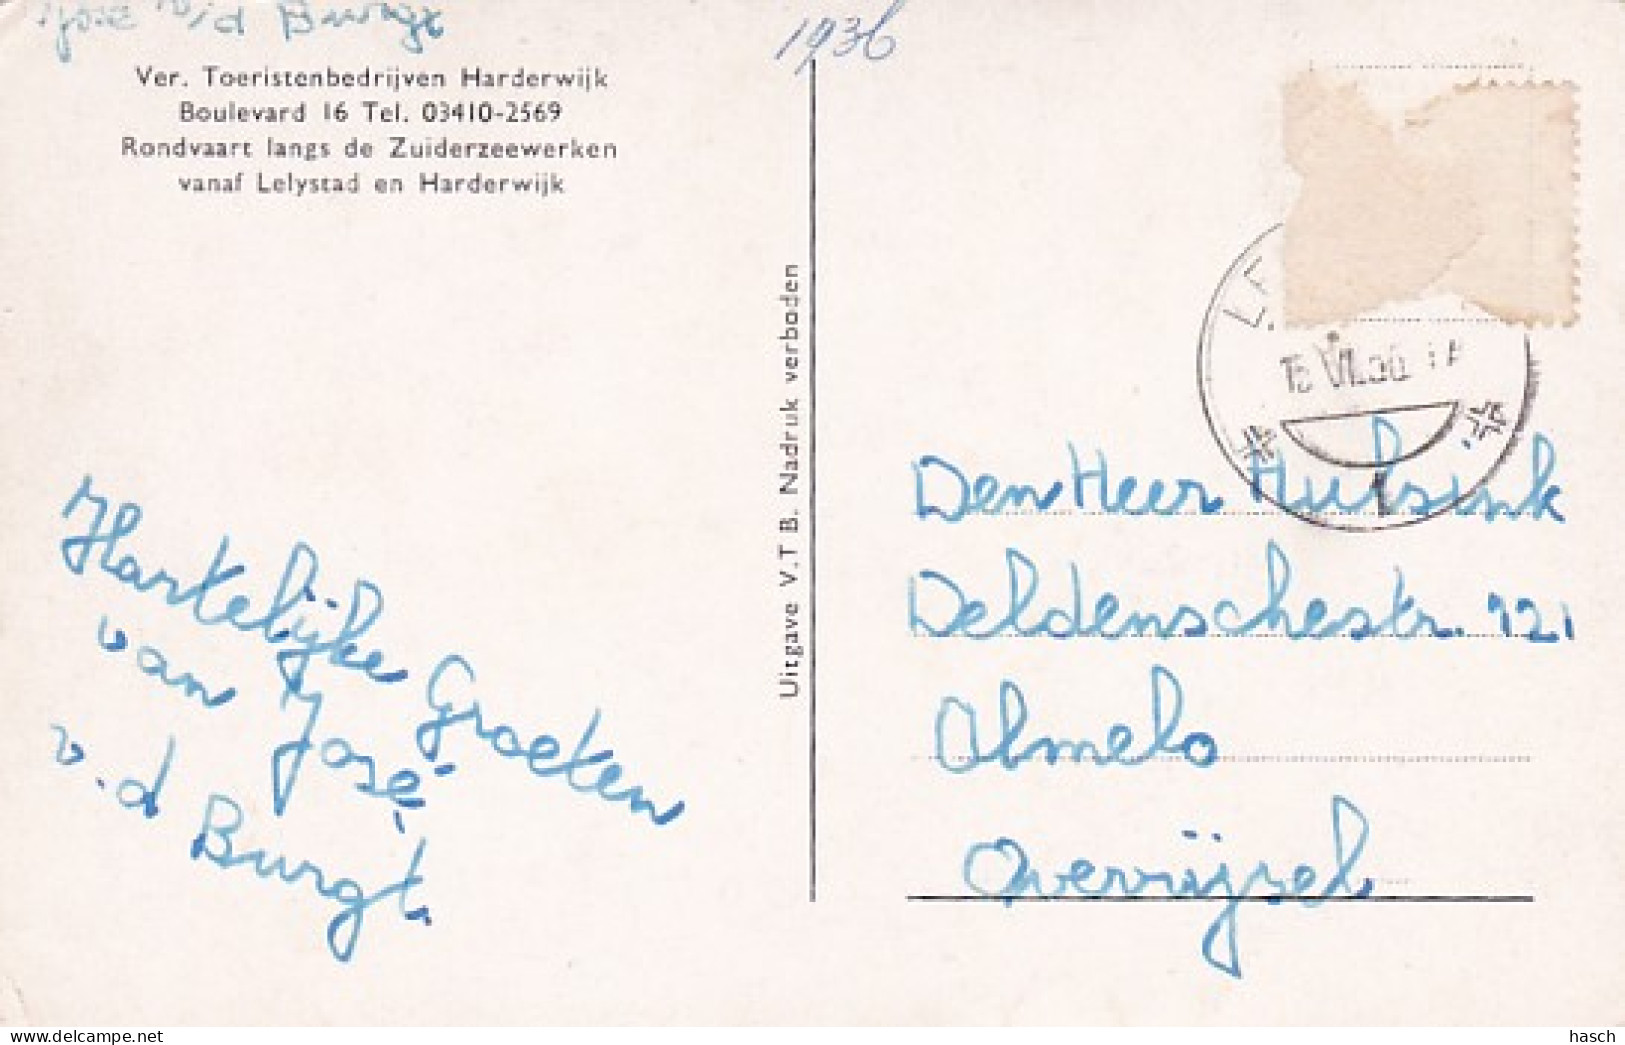 José v/d Burgt
1936
Ver. Toeristenbedrijven Harderwijk
Boulevard 16 Tel. 03410-2569
Rondvaart langs de Zuiderzeewerken
vanaf Lelystad en Harderwijk
Uitgave V.T B. Nadruk verboden
Hartelijke Groeten
van José
v.d Burgt.
Den Heer Hulsink
Deldenschestr. 121
Almelo
Overrijsel
hasch